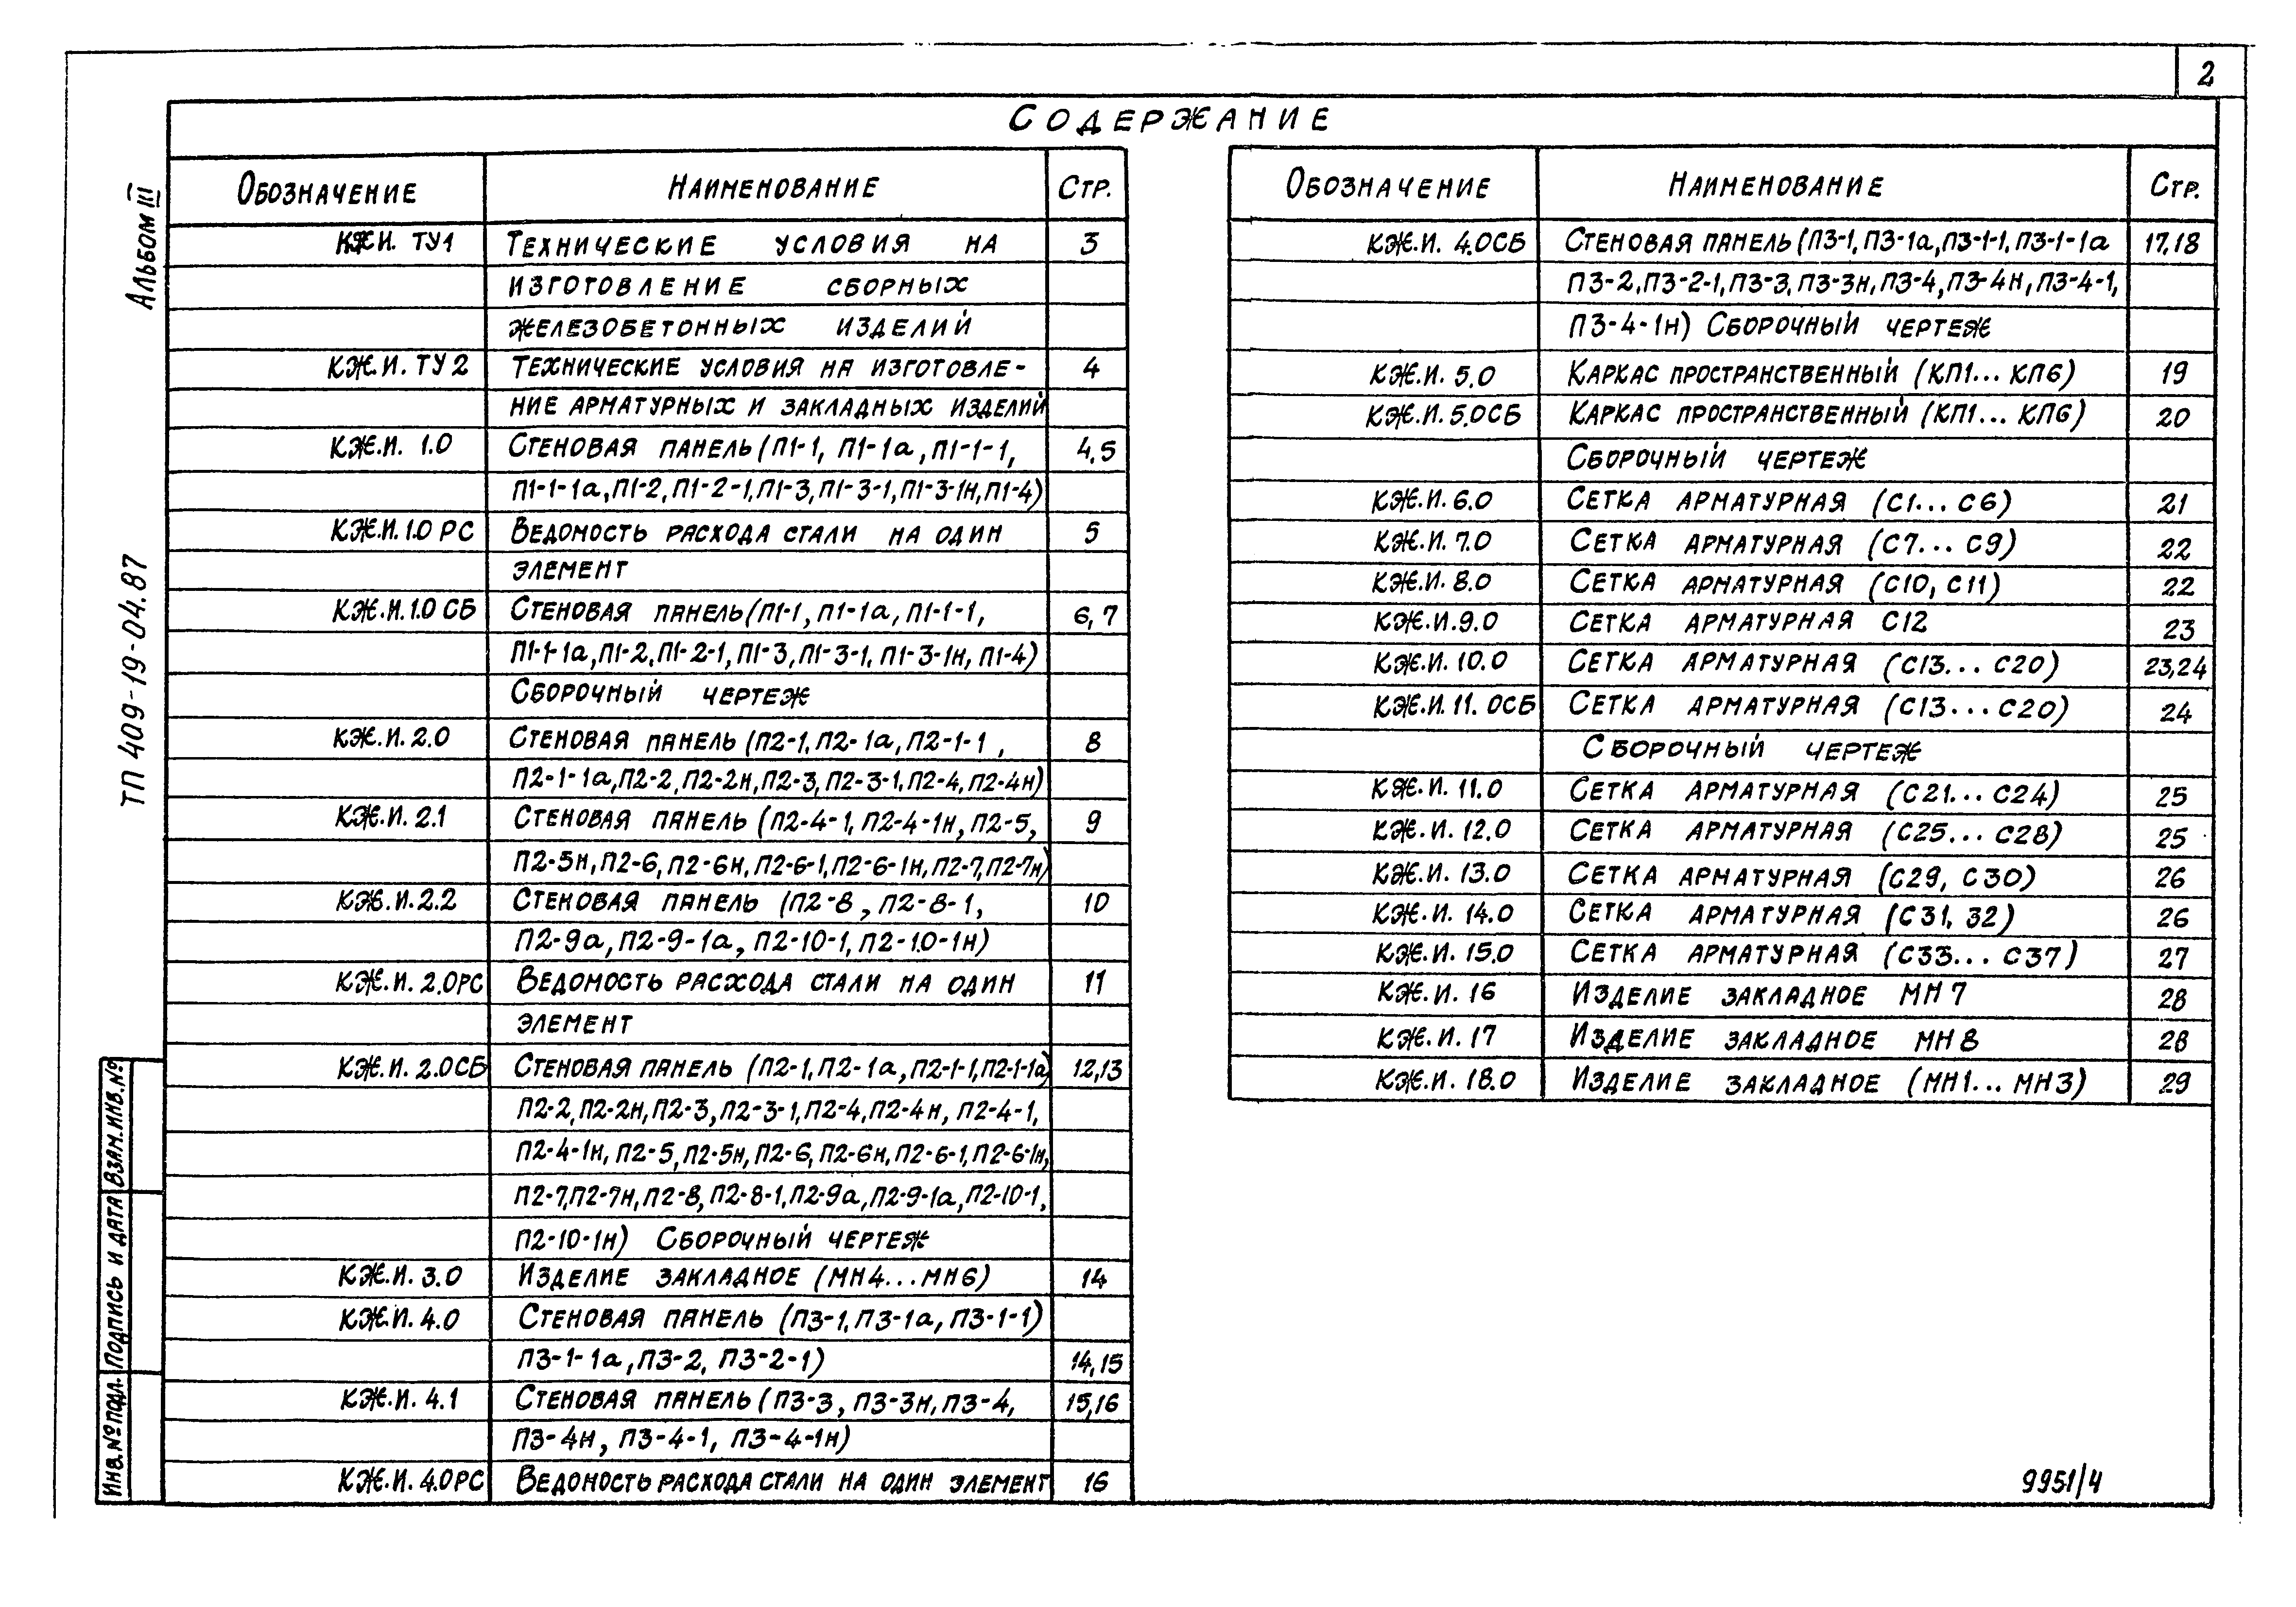 2
СОДЕРЖАНИЕ
Альбом III
ТП 409-19-04.87
ОБОЗНАЧЕНИЕ НАИМЕНОВАНИЕ СТР.
КЖ.И. ТУ1 ТЕХНИЧЕСКИЕ УСЛОВИЯ НА 3
ИЗГОТОВЛЕНИЕ СБОРНЫХ
ЖЕЛЕЗОБЕТОННЫХ ИЗДЕЛИЙ
КЖ.И. ТУ2 ТЕХНИЧЕСКИЕ УСЛОВИЯ НА ИЗГОТОВЛЕ- 4
НИЕ АРМАТУРНЫХ И ЗАКЛАДНЫХ ИЗДЕЛИЙ
КЖ.И. 1.0 СТЕНОВАЯ ПАНЕЛЬ (П1-1, П1-1а, П1-1-1, 4,5
П1-1-1а, П1-2, П1-2-1, П1-3, П1-3-1, П1-3-1н, П1-4)
КЖ.И. 1.0 РС ВЕДОМОСТЬ РАСХОДА СТАЛИ НА ОДИН 5
ЭЛЕМЕНТ
КЖ.И. 1.0 СБ СТЕНОВАЯ ПАНЕЛЬ (П1-1, П1-1а, П1-1-1, 6,7
П1-1-1а, П1-2, П1-2-1, П1-3, П1-3-1, П1-3-1н, П1-4)
СБОРОЧНЫЙ ЧЕРТЕЖ
КЖ.И. 2.0 СТЕНОВАЯ ПАНЕЛЬ (П2-1, П2-1а, П2-1-1, 8
П2-1-1а, П2-2, П2-2н, П2-3, П2-3-1, П2-4, П2-4н)
КЖ.И. 2.1 СТЕНОВАЯ ПАНЕЛЬ (П2-4-1, П2-4-1н, П2-5, 9
П2-5н, П2-6, П2-6н, П2-6-1, П2-6-1н, П2-7, П2-7н)
КЖ.И. 2.2 СТЕНОВАЯ ПАНЕЛЬ (П2-8, П2-8-1, 10
П2-9а, П2-9-1а, П2-10-1, П2-1.0-1н)
КЖ.И. 2.0РС ВЕДОМОСТЬ РАСХОДА СТАЛИ НА ОДИН 11
ЭЛЕМЕНТ
КЖ.И. 2.0СБ СТЕНОВАЯ ПАНЕЛЬ (П2-1, П2-1а, П2-1-1, П2-1-1а) 12,13
П2-2, П2-2н, П2-3, П2-3-1, П2-4, П2-4н, П2-4-1,
П2-4-1н, П2-5, П2-5н, П2-6, П2-6н, П2-6-1, П2-6-1н,
П2-7, П2-7н, П2-8, П2-8-1, П2-9а, П2-9-1а, П2-10-1,
П2-10-1н) СБОРОЧНЫЙ ЧЕРТЕЖ
КЖ.И. 3.0 ИЗДЕЛИЕ ЗАКЛАДНОЕ (МН4...МН6) 14
КЖ.И. 4.0 СТЕНОВАЯ ПАНЕЛЬ (П3-1, П3-1а, П3-1-1)
П3-1-1а, П3-2, П3-2-1) 14,15
КЖ.И. 4.1 СТЕНОВАЯ ПАНЕЛЬ (П3-3, П3-3н, П3-4, 15,16
П3-4н, П3-4-1, П3-4-1н)
КЖ.И. 4.0РС ВЕДОМОСТЬ РАСХОДА СТАЛИ НА ОДИН ЭЛЕМЕНТ 16
ОБОЗНАЧЕНИЕ НАИМЕНОВАНИЕ СТР.
КЖ.И. 4.0СБ СТЕНОВАЯ ПАНЕЛЬ (П3-1, П3-1а, П3-1-1, П3-1-1а 17,18
П3-2, П3-2-1, П3-3, П3-3н, П3-4, П3-4н, П3-4-1,
П3-4-1н) СБОРОЧНЫЙ ЧЕРТЕЖ
КЖ.И. 5.0 КАРКАС ПРОСТРАНСТВЕННЫЙ (КП1... КП6) 19
КЖ.И. 5.0СБ КАРКАС ПРОСТРАНСТВЕННЫЙ (КП1... КП6) 20
СБОРОЧНЫЙ ЧЕРТЕЖ
КЖ.И. 6.0 СЕТКА АРМАТУРНАЯ (С1... С6) 21
КЖ.И. 7.0 СЕТКА АРМАТУРНАЯ (С7... С9) 22
КЖ.И. 8.0 СЕТКА АРМАТУРНАЯ (С10, С11) 22
КЖ.И. 9.0 СЕТКА АРМАТУРНАЯ С12 23
КЖ.И. 10.0 СЕТКА АРМАТУРНАЯ (С13... С20) 23,24
КЖ.И. 11. 0СБ СЕТКА АРМАТУРНАЯ (С13... С20) 24
СБОРОЧНЫЙ ЧЕРТЕЖ
КЖ.И. 11.0 СЕТКА АРМАТУРНАЯ (С21... С24) 25
КЖ.И. 12.0 СЕТКА АРМАТУРНАЯ (С25... С28) 25
КЖ.И. 13.0 СЕТКА АРМАТУРНАЯ (С29, С30) 26
КЖ.И. 14.0 СЕТКА АРМАТУРНАЯ (С31, 32) 26
КЖ.И. 15.0 СЕТКА АРМАТУРНАЯ (С33... С37) 27
КЖ.И. 16 ИЗДЕЛИЕ ЗАКЛАДНОЕ МН7 28
КЖ.И. 17 ИЗДЕЛИЕ ЗАКЛАДНОЕ МН8 28
КЖ.И. 18.0 ИЗДЕЛИЕ ЗАКЛАДНОЕ (МН1... МН3) 29
ИНВ.№ ПОДЛ. ПОДПИСЬ И ДАТА ВЗАМ.ИНВ.№
9951/4